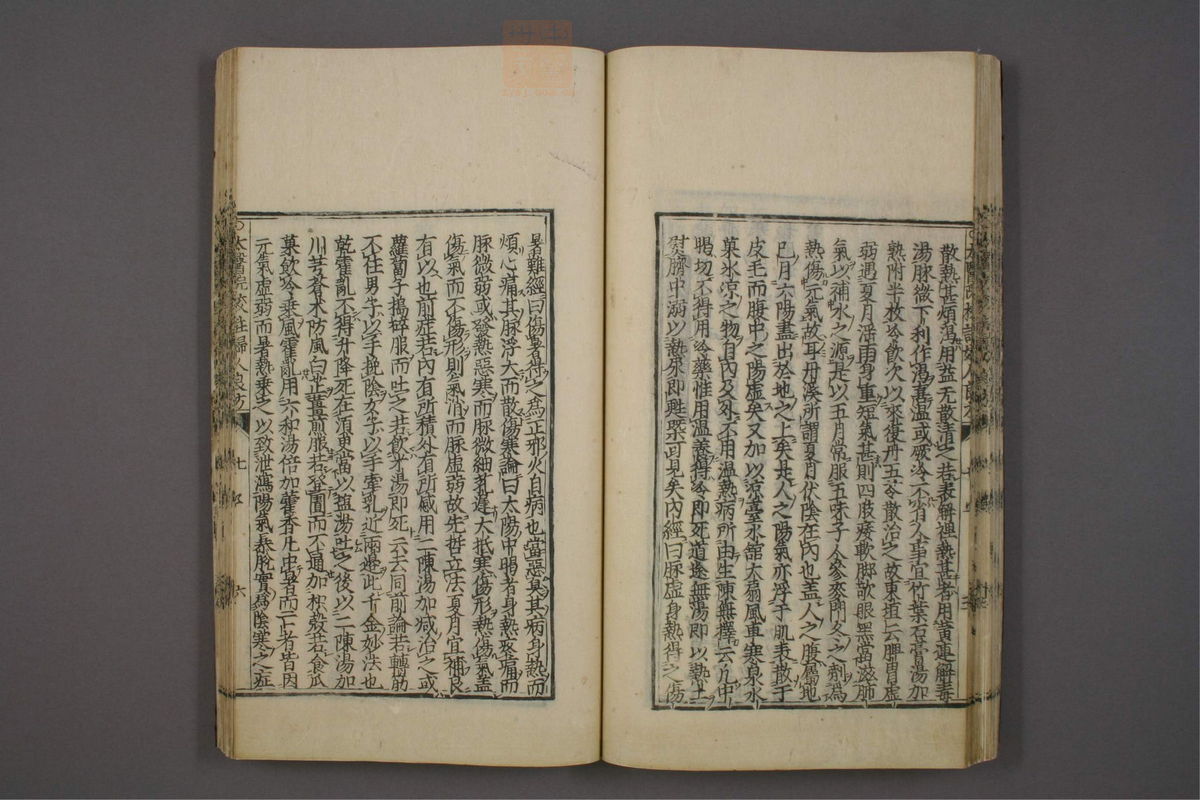 散熱甚煩渴用益元散清之若表解裡熱甚者用黃連解毒
湯脉微下利作渴喜溫或厥冷不省人事宜竹葉石膏湯加
熟附半枚冷飲次以來復丹五苓散治之故東垣云脾胃虛
弱遇夏月淫雨身重短氣甚則四肢痿軟脚欹眼黑當滋肺
氣以補水之源是以五月常服五味子人參麥門冬之劑為
熱傷元氣故耳丹溪所謂夏月伏陰在內也盖人之腹屬地
巳月六陽盡出於地之上矣是人之陽氣亦浮于肌表散于
皮毛而腹中之陽虛矣又加以凉臺水舘大扇風車寒泉水
菓氷凉之物自內及外不用溫熱病所由生陳無擇云凡中
暍切不得用冷藥惟用溫養得冷即死道途無湯即以熱土
熨臍中溺以熱尿即甦槩可見矣內經曰脉虛身熱得之傷
暑難經曰傷暑得之為正邪火自病也當惡臭其病身熱而
煩心痛其脉浮大而散傷寒論曰太陽中暍者身熱疼痛而
脉微弱或發熱惡寒而脉微細芤遲大抵寒傷形熱傷氣盖
傷氣而不傷形則氣消而脉虛弱故先哲立法夏月宜補良
有以也前症若內有所積外有所感用二陳湯加减治之或
蘿蔔子搗碎服而吐之若飲米湯即死一云同前論若轉筋
不住男子以手挽陰女子以手牽乳近兩邊此千金妙法也
乾霍亂不得升降死在須臾當以鹽湯吐之後以二陳湯加
川芎蒼术防風白芷薑煎服若登圊而不通加枳殼若食瓜
菓飲冷乗風霍亂用六和湯倍加藿香凡中暑而亡者皆因
元氣虛弱而暑熱乗之以致泄瀉陽氣暴脫實為陰寒之症
○太醫院校註婦人良方 七卷 六